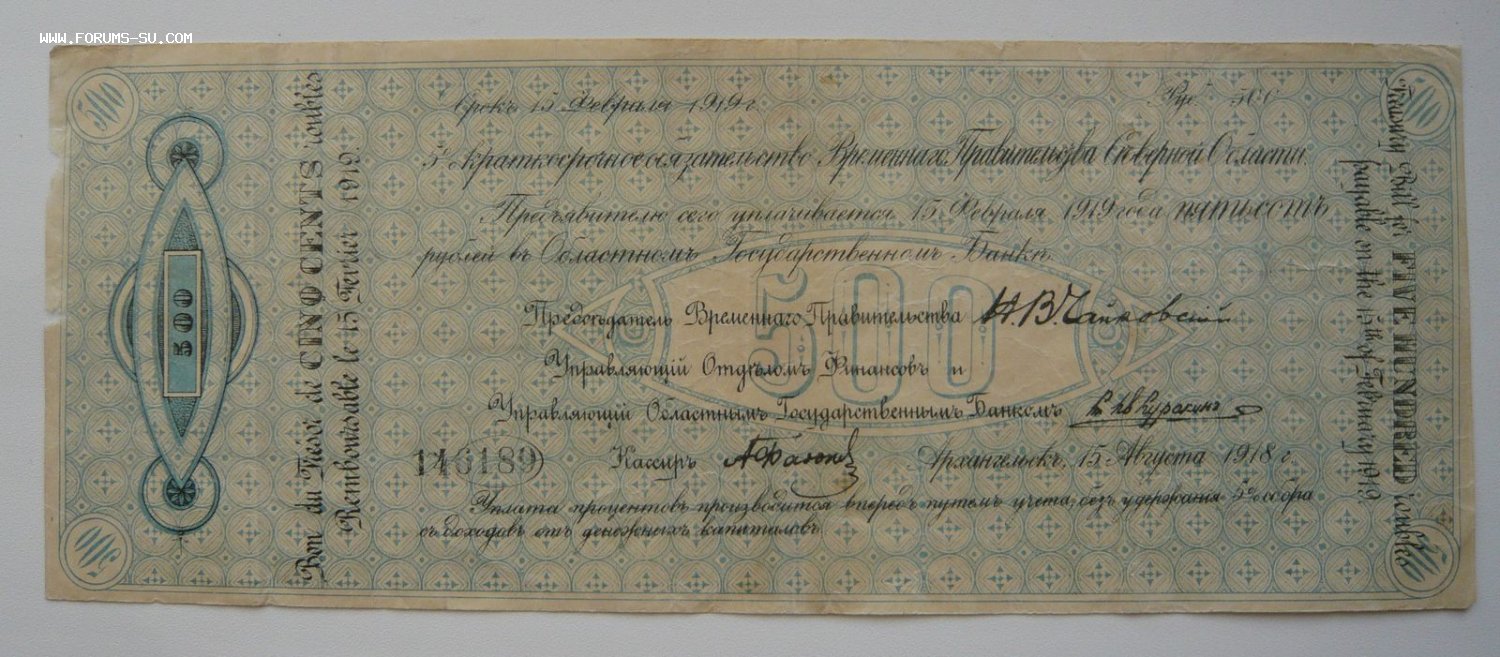 WWW.FORUMS-SU.COM
500
500
Bon du Trésor de CINQ CENTS roubles
Remboursable le 15 Fevrier 1919.
Срокъ 15 Февраля 1919 г.
Руб. 500
5% краткосрочное обязательство Временнаго Правительства Сѣверной Области.
Предъявителю сего уплачивается 15 Февраля 1919 года пятьсотъ
рублей въ Областномъ Государственномъ Банкѣ.
500
Предсѣдатель Временнаго Правительства Н.В. Чайковскій
Управляющій Отдѣломъ Финансовъ и
Управляющій Областнымъ Государственнымъ Банкомъ Куракинъ
146189
Кассиръ
Архангельскъ, 15 Августа 1918 г.
Уплата процентовъ производится впередъ путемъ учета, безъ удержанія 5% сбора
съ доходовъ отъ денежныхъ капиталовъ.
500
Treasury Bill for FIVE HUNDRED roubles
payable on the 15th of February 1919
500
500